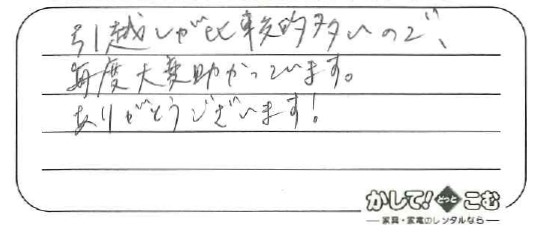 引越しが比較的多いので、
毎度大変助かっています。
ありがとうございます!
かして!どっとこむ
家具・家電のレンタルなら